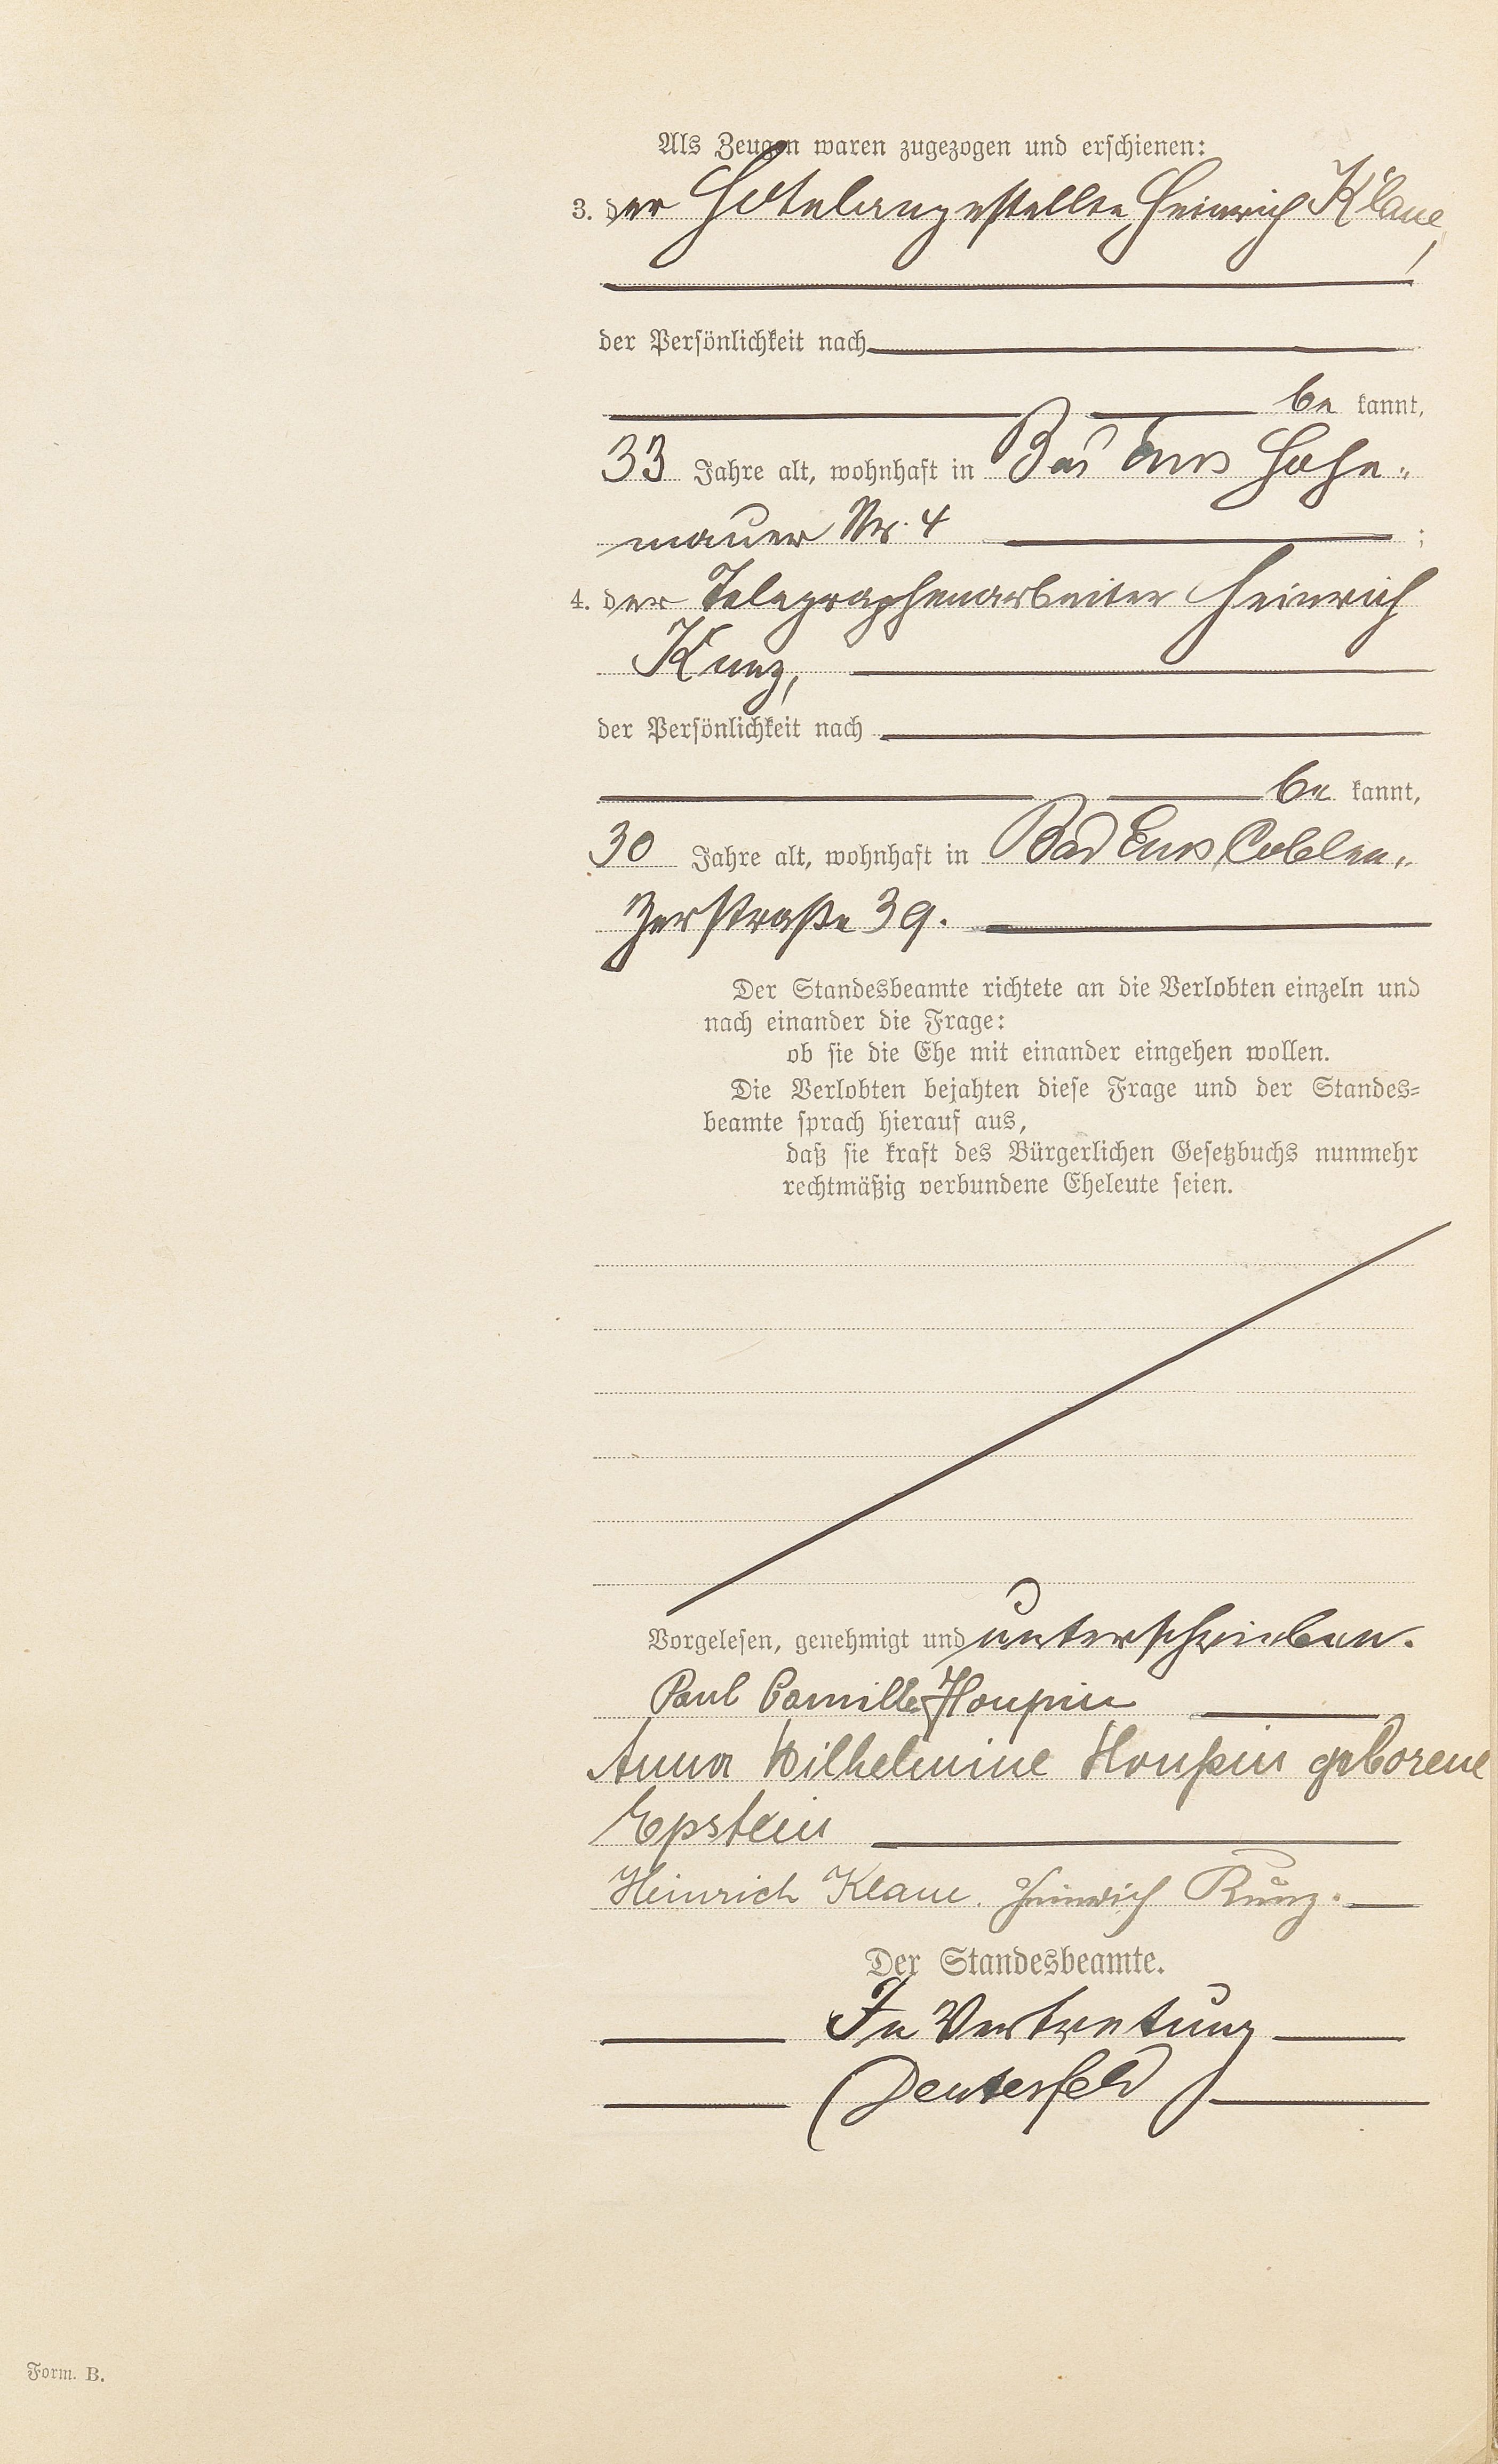 Als Zeugen waren zugezogen und erschienen:
3. der Hotelangestellte Heinrich Klaue,
der Persönlichkeit nach
be kannt,
33 Jahre alt, wohnhaft in Bad Ems Hohe-
mauer Nr. 4 ;
4. der Telegraphenarbeiter Heinrich
Kunz,
der Persönlichkeit nach
be kannt,
30 Jahre alt, wohnhaft in Bad Ems, Coblen-
zerstraße 39.
Der Standesbeamte richtete an die Verlobten einzeln und
nach einander die Frage:
ob sie die Ehe mit einander eingehen wollen.
Die Verlobten bejahten diese Frage und der Standes-
beamte sprach hierauf aus,
daß sie kraft des Bürgerlichen Gesetzbuchs nunmehr
rechtmäßig verbundene Eheleute seien.
Vorgelesen, genehmigt und unterschrieben.
Paul Camille Houpin
Anna Wilhelmine Houpin geborene
Epstein
Heinrich Klaue. Heinrich Kunz.
Der Standesbeamte.
In Vertretung
Deutesfeld
Form. B.